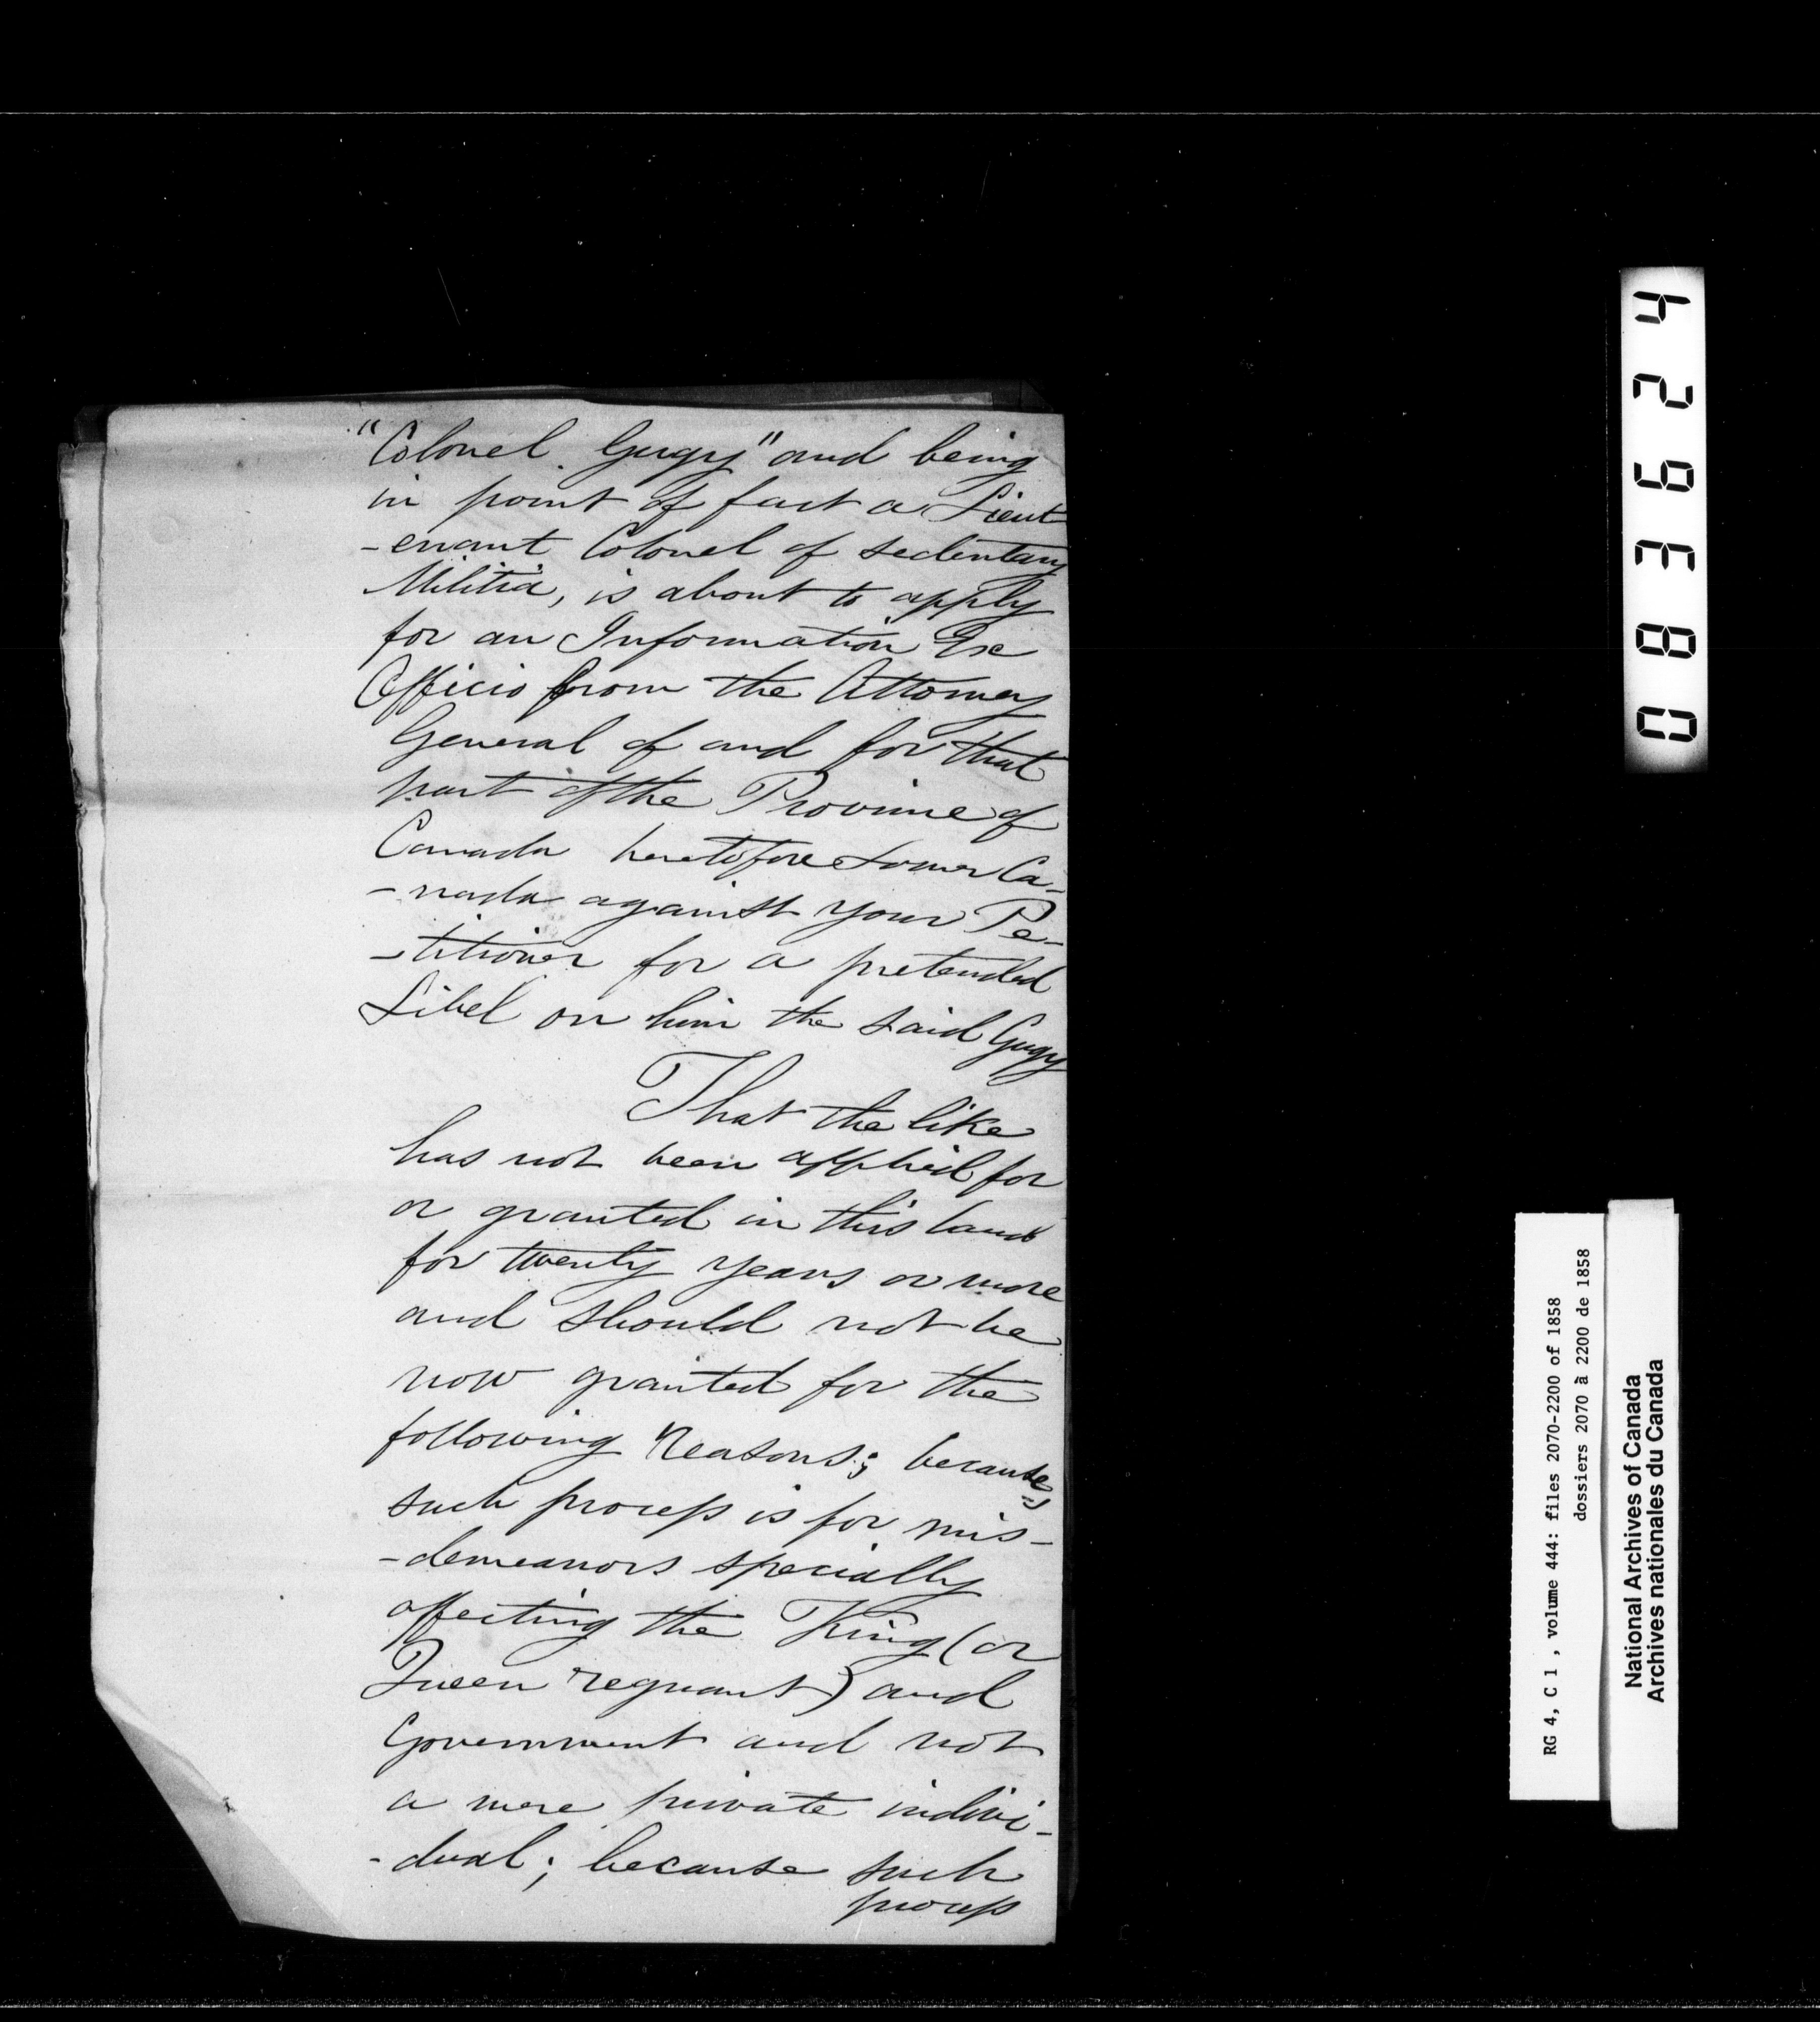 "Colonel Gugy" and being
in point of fact a Lieut
-enant Colonel of sedentary
Militia, is about to apply
for an Information Ex
Officio from the Attorney
General of and for that
part of the Province of
Canada heretofore Lower Ca-
-nada against your Pe-
-titioner for a pretended
Libel on him the said Gugy
That the like
has not been applied for
or granted in this land
for twenty years or more
and should not be
now granted for the
following reasons; because
such process is for mis-
-demeanors specially
affecting the King (or
Queen regnant) and
Government and not
a mere private indivi-
-dual; because such
process
083624
RG 4, C 1 , volume 444: files 2070-2200 of 1858
dossiers 2070 à 2200 de 1858
National Archives of Canada
Archives nationales du Canada